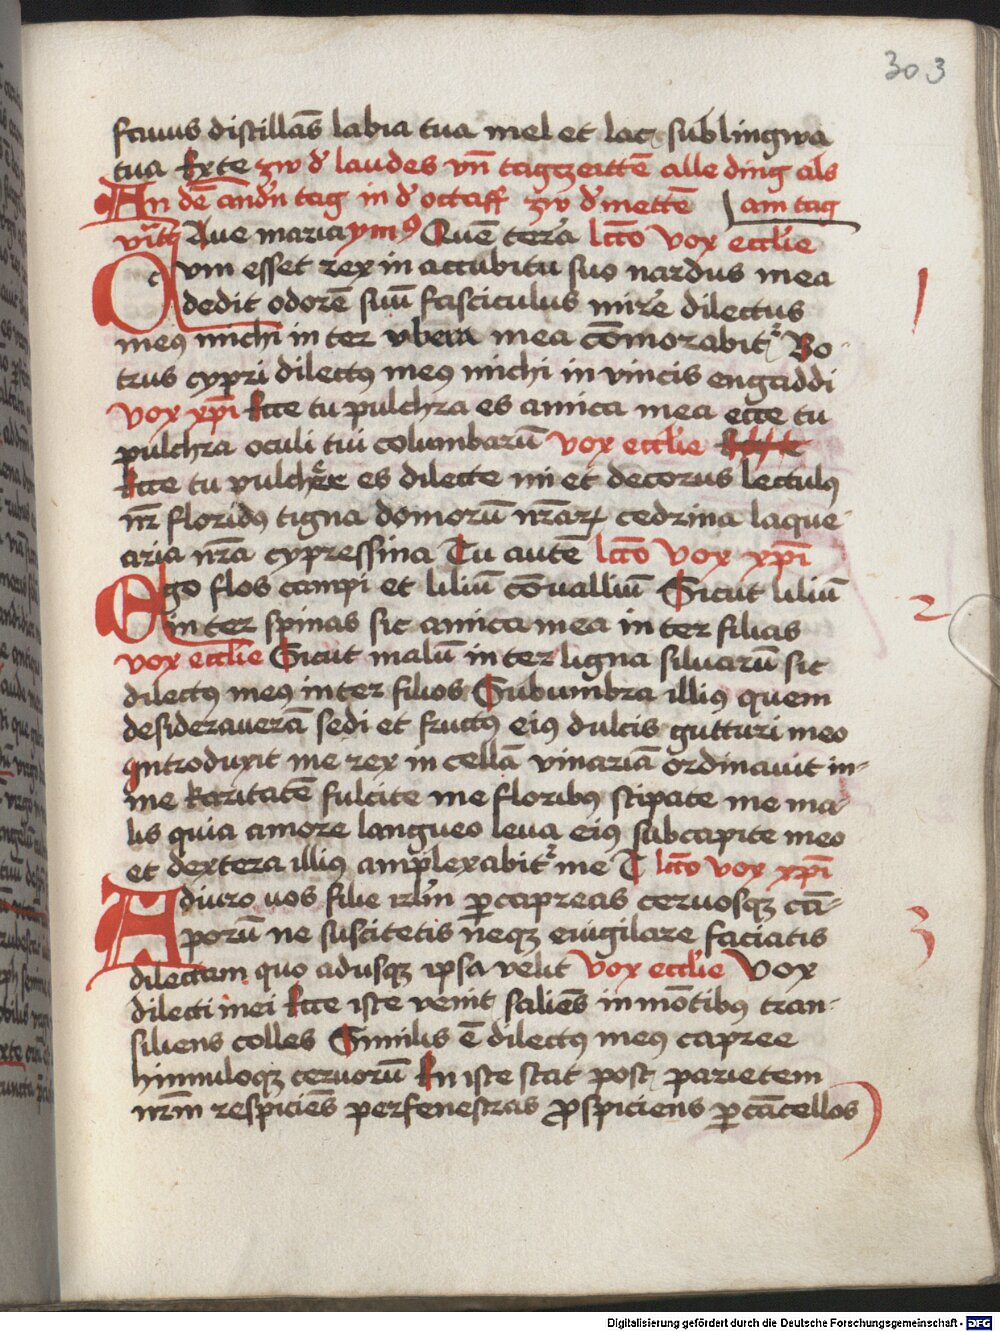 303
fauus distillãs labia tua mel et lac sub lingwa
tua Exte zw d' laudes vñ tagzeittẽ alle ding als
An dẽ andn̄ tag in d' octaff zw d' mettẽ am tag
Aue maria ymꝰ Quẽ terã lcc̃o vox eccl'ie
Cvm esset rex in accubitu suo nardus mea
dedit odorẽ suũ fasciculus mirre dilectus
meꝰ michi inter vbera mea cõmorabit᷑ Bo
trus cypri dilectꝰ meꝰ michi in vineis engaddi
vox xp̃i Ecce tu pulchra es amica mea ecce tu
pulchra oculi tui columbarũ vox eccl'ie
Ecce tu pulchre es dilecte mi et decorus lectulꝰ
nr̃ floridꝰ tigna domorũ nr̃arꝝ cedrina laque
aria nr̃a cypressina Tu autẽ lcc̃o Vox xp̃i
Ego flos campi et liliũ cõualliũ Sicut liliũ
inter spinas sic amica mea inter filias
vox eccl'ie Sicut malũ inter ligna siluarũ sic
dilectꝰ meꝰ inter filios Subumbra illiꝰ quem
desiderauerã sedi et fructꝰ eiꝰ dulcis gutturi meo
introduxit me rex in cellã vinariã ordinauit in-
me karitatẽ fulcite me floribꝰ stipate me ma-
lis quia amore langueo leua eiꝰ sub capite meo
et dextera illiꝰ amplexabit᷑ me T lcc̃o vox xp̃i
Adiuro uos filie irl̃m ꝑ capreas ceruosqꝫ cã-
porũ ne suscitetis neqꝫ euigilare faciatis
dilectam quo adusqꝫ ipsa velit Vox eccl'ie Vox
dilecti mei Ecce iste venit saliẽs in mõtibꝰ tran-
siliens colles Similis ẽ dilectꝰ meꝰ capree
himuloqꝫ ceruorũ En iste stat post parietem
nr̃m respiciẽs per fenestras ꝓspiciens ꝑ cãcellos
1
2
3
Digitalisierung gefördert durch die Deutsche Forschungsgemeinschaft - DFG